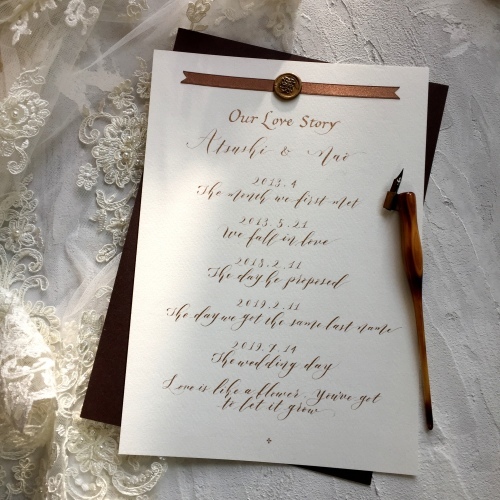 Our Love Story
Atsushi & Nao
2013.4
The month we first met
2013.5.21
We fall in love
2018.2.11
The day he proposed
2019.2.11
The day we got the same last name
2019.7.14
The wedding day
Love is like a flower. You've got
to let it grow